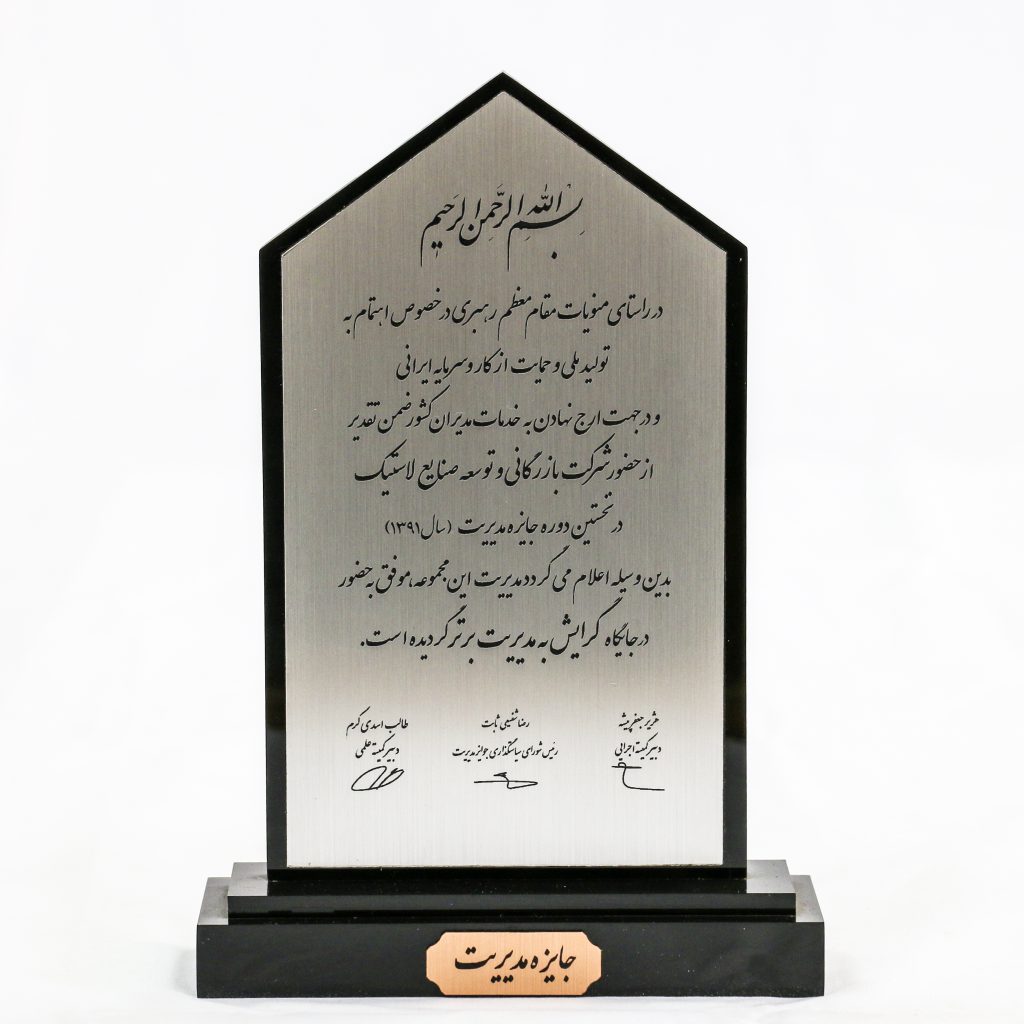 بسم الله الرحمن الرحیم
در راستای منویات مقام معظم رهبری در خصوص اهتمام به
تولید ملی و حمایت از کار و سرمایه ایرانی
و در جهت ارج نهادن به خدمات مدیران کشور ضمن تقدیر
از حضور شرکت بازرگانی و توسعه صنایع لاستیک
در نخستین دوره جایزه مدیریت (سال ۱۳۹۱)
بدین وسیله اعلام می گردد مدیریت این مجموعه، موفق به حضور
در جایگاه گرایش به مدیریت برتر گردیده است.
هژیر جعفر پیشه
دبیر کمیته اجرایی
رضا شفیعی ثابت
رئیس شورای سیاستگذاری جوایز مدیریت
طالب اسدی کرم
دبیر کمیته علمی
جایزه مدیریت